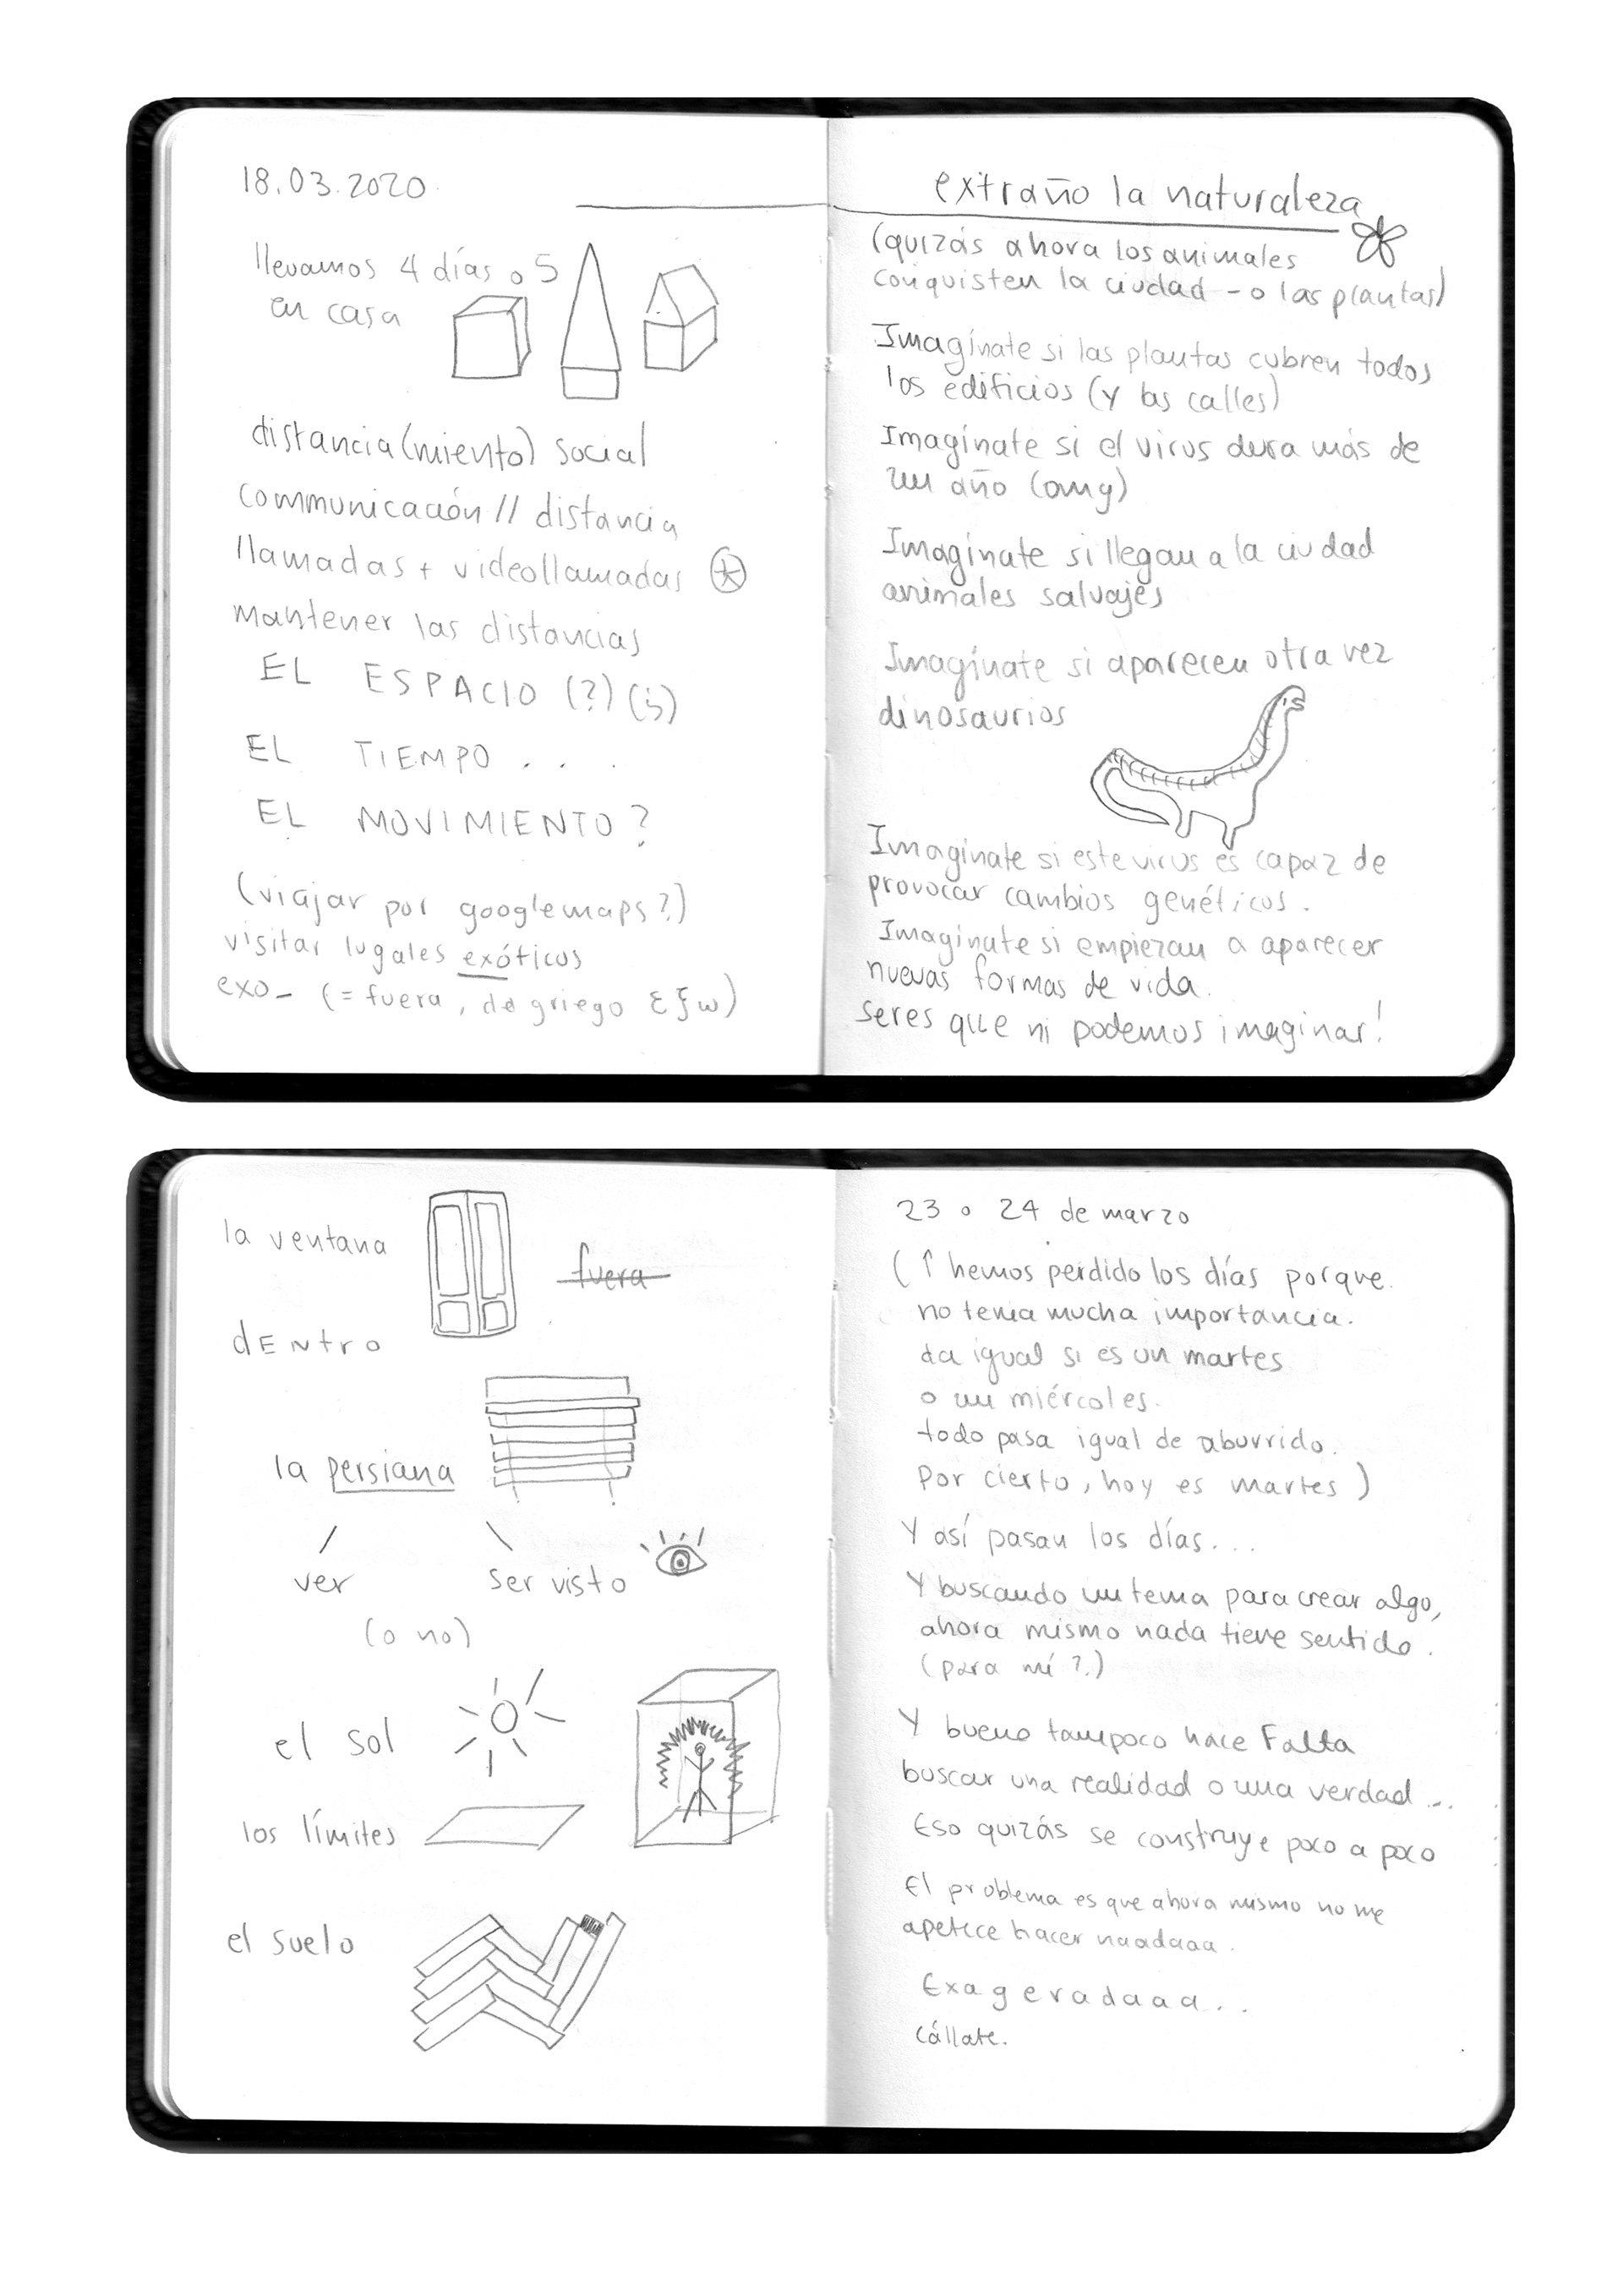 18.03.2020
llevamos 4 días o 5
en casa
distancia(miento) social
communicación // distancia
llamadas + videollamadas
mantener las distancias
EL ESPACIO (?) (¿)
EL TIEMPO . . .
EL MOVIMIENTO?
(viajar por googlemaps?)
visitar lugales exóticos
exo- (= fuera, de griego εξω)
extraño la naturaleza
(quizás ahora los animales
conquisten la ciudad - o las plantas)
Imagínate si las plantas cubren todos
los edificios (y las calles)
Imagínate si el virus dura más de
un año (omg)
Imagínate si llegan a la ciudad
animales salvajes
Imagínate si aparecen otra vez
dinosaurios
Imagínate si este virus es capaz de
provocar cambios genéticos.
Imagínate si empiezan a aparecer
nuevas formas de vida.
seres que ni podemos imaginar!
la ventana
fuera
dENtro
la persiana
ver
ser visto
(o no)
el sol
los límites
el suelo
23 o 24 de marzo
(↑ hemos perdido los días porque
no tenia mucha importancia.
da igual si es un martes
o un miércoles.
todo pasa igual de aburrido.
Por cierto, hoy es martes)
Y así pasan los días...
Y buscando un tema para crear algo,
ahora mismo nada tiene sentido.
(para mí?)
Y bueno tampoco hace Falta
buscar una realidad o una verdad...
Eso quizás se construye poco a poco
El problema es que ahora mismo no me
apetece hacer naadaaa.
Exageradaaa...
Cállate.